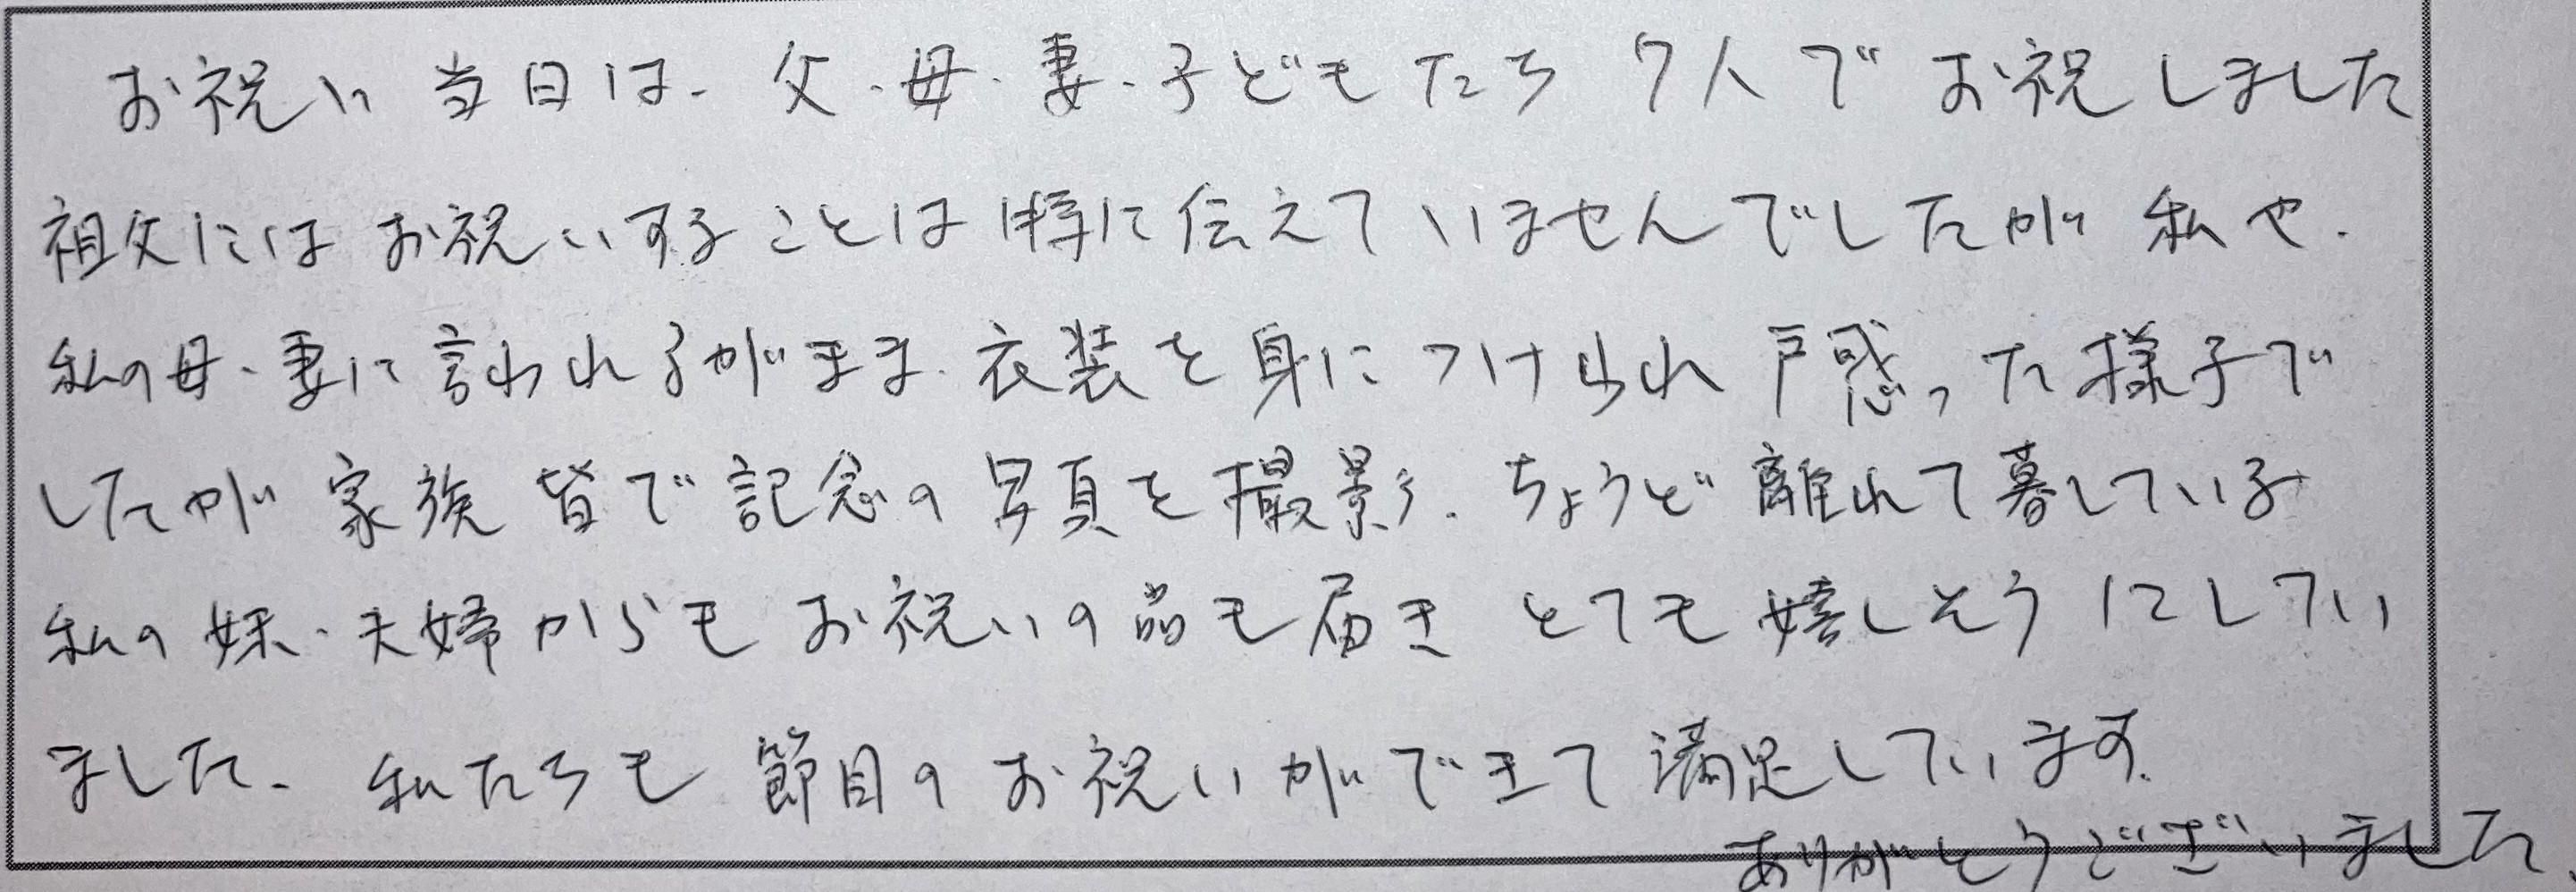 お祝い当日は、父・母・妻・子どもたち7人でお祝しました
祖父にはお祝いすることは特に伝えていませんでしたが私や、
私の母・妻に言われるがまま、衣装を身につけられ戸惑った様子で
したが家族皆で記念の写真を撮影、ちょうど離れて暮している
私の妹・夫婦からもお祝いの品も届きとても嬉しそうにしてい
ました。私たちも節目のお祝いができて満足しています。
ありがとうございました